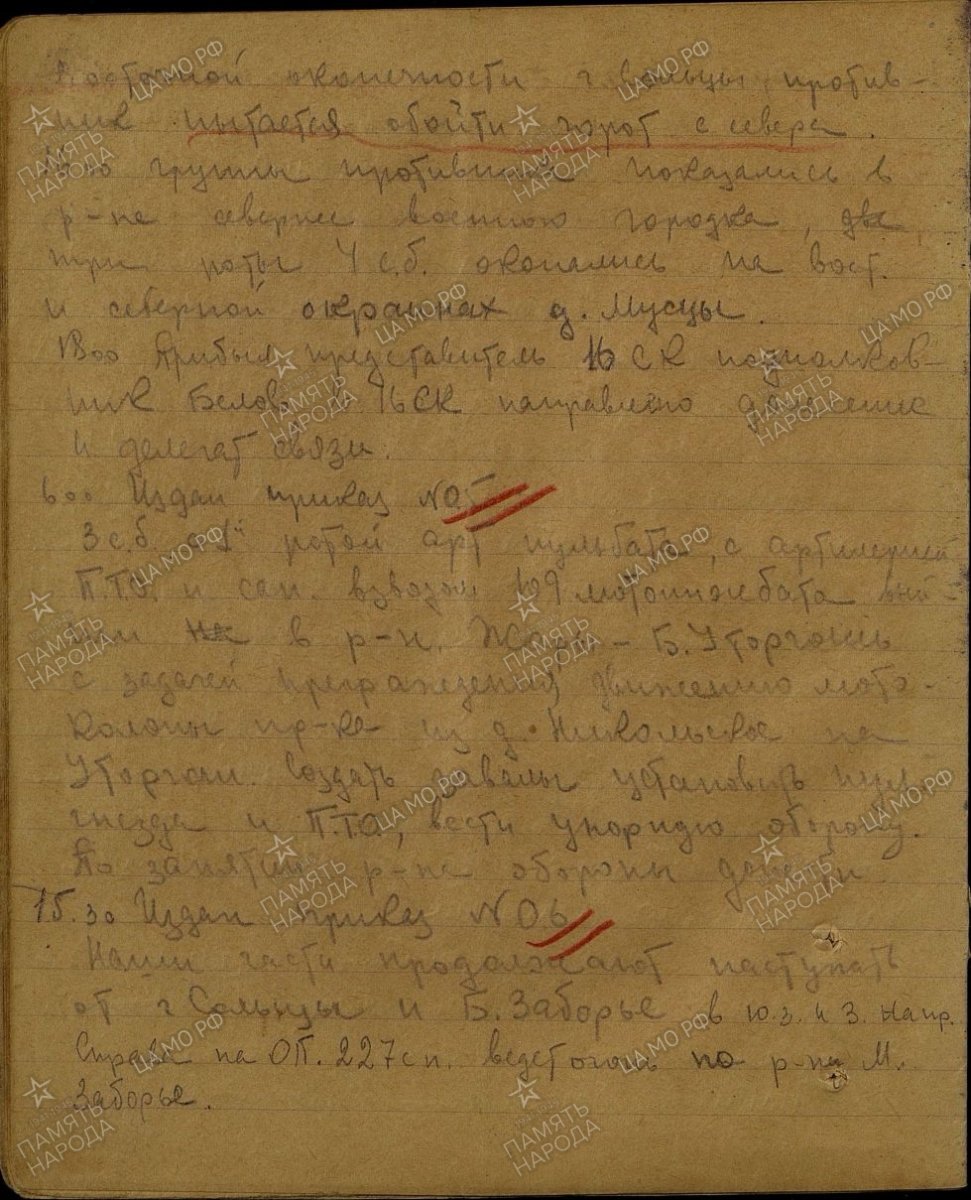 восточной оконечности г Сольцы, против-
ник пытается обойти горот с севера.
группы противника показались в
р-не севернее военного городка, две
три роты 4 с.б. окопались на вост.
и северной окраинах д. Мусцы.
18 00 Прибыл представитель 16 СК подполков-
ник Белов. в 16 СК направлено донесение
и делегат связи.
6 00 Издан приказ №05
3 с.б. с 1й ротой арт пульбата, с артилерией
П.Т.О. и сап. взводом 109 мотоинжбата
в р-н. - Б. Уторгошь
с задачей преграждения движению мото-
колоны пр-ка из д. Никольское на
Уторгош. Создать завалы установить пулем
гнезда и П.Т.О, вести упорную оборону.
По занятии р-на обороны донести
15.30 Издан приказ №06
Наши части продолжают наступать
от г Сольцы и Б. Заборье в ю.з. и З. напр.
Справа на ОП. 227 сп. ведет огонь по р-ну М.
Заборье.